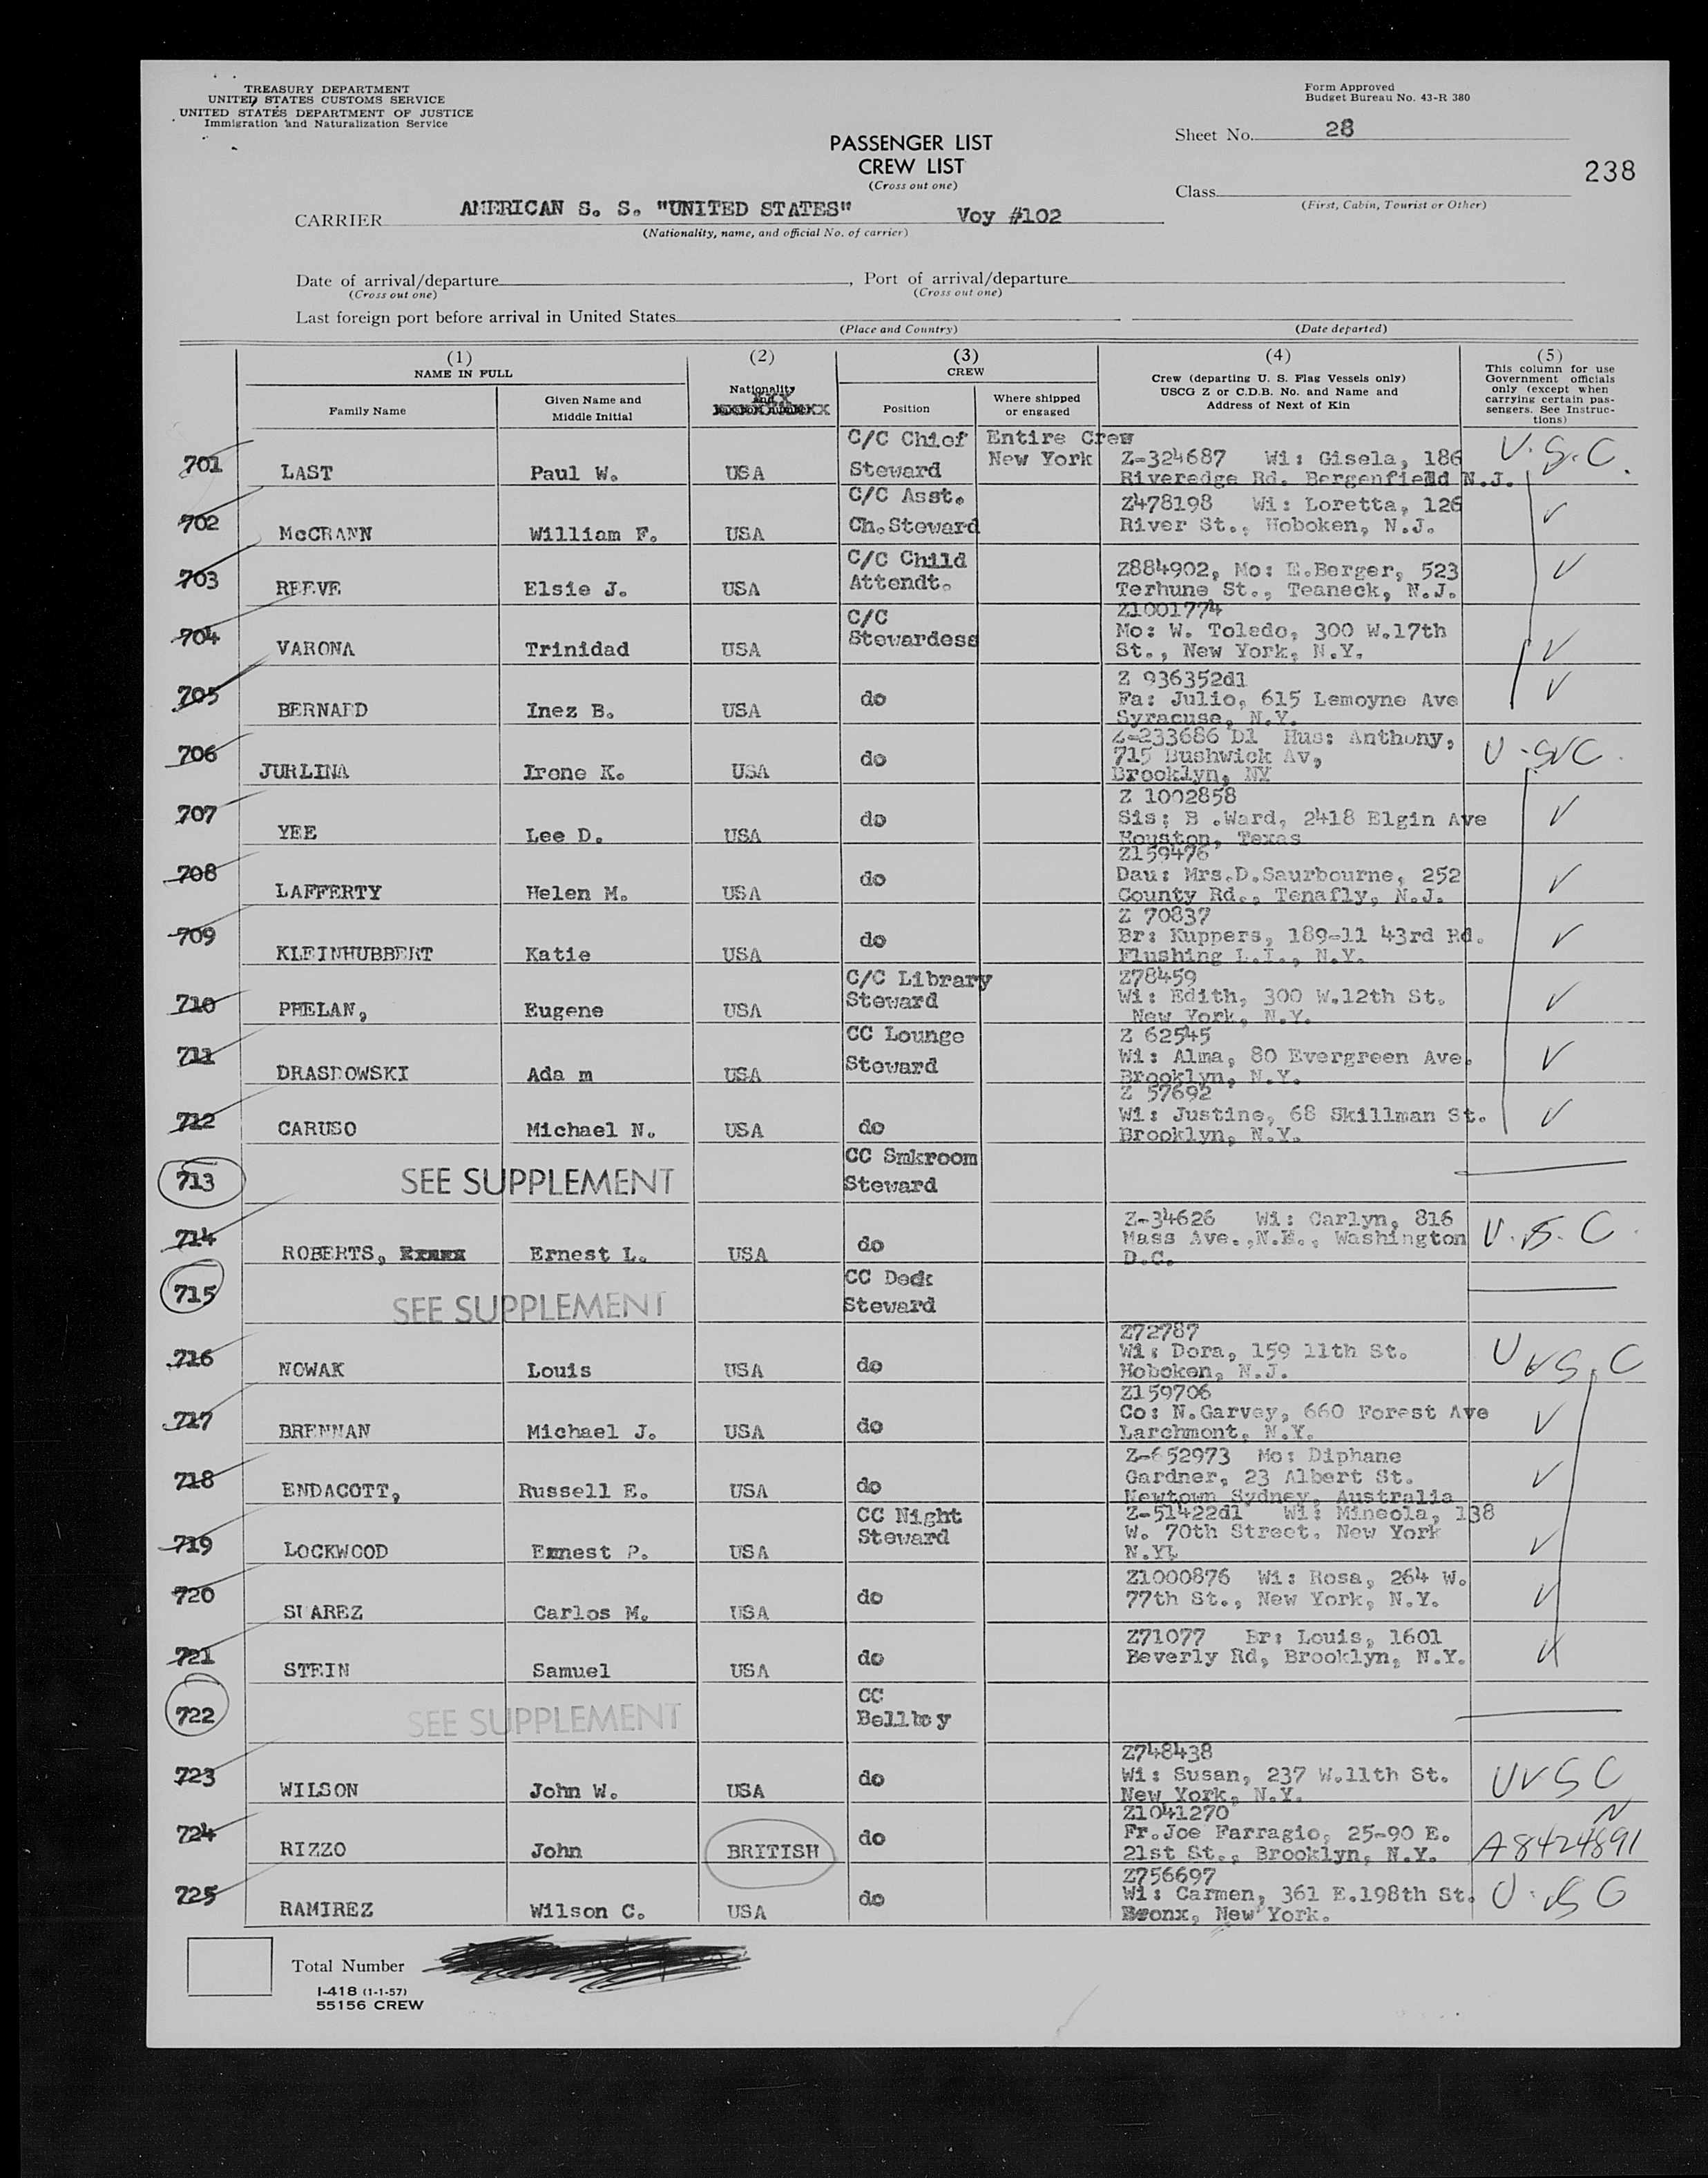 TREASURY DEPARTMENT
UNITED STATES CUSTOMS SERVICE
UNITED STATES DEPARTMENT OF JUSTICE
Immigration and Naturalization Service
Form Approved
Budget Bureau No. 43-R 380
PASSENGER LIST
CREW LIST
(Cross out one)
Sheet No. 28
238
Class
(First, Cabin, Tourist or Other)
CARRIER AMERICAN S. S. "UNITED STATES" Voy #102
(Nationality, name, and official No. of carrier)
Date of arrival/departure , Port of arrival/departure
(Cross out one) (Cross out one)
Last foreign port before arrival in United States
(Place and Country) (Date departed)
(1) NAME IN FULL
Family Name
Given Name and Middle Initial
(2) Nationality
(3) CREW
Position
Where shipped or engaged
(4)
Crew (departing U. S. Flag Vessels only)
USCG Z or C.D.B. No. and Name and
Address of Next of Kin
(5)
This column for use
Government officials
only (except when
carrying certain pas-
sengers. See Instruc-
tions)
701 LAST Paul W. USA C/C Chief Steward Entire Crew New York Z-324687 Wi: Gisela, 186 Riveredge Rd. Bergenfield N.J. U.S.C.
702 McCRANN William F. USA C/C Asst. Ch.Steward Z478198 Wi: Loretta, 126 River St., Hoboken, N.J. ✓
703 REEVE Elsie J. USA C/C Child Attendt. Z884902, Mo: E.Berger, 523 Terhune St., Teaneck, N.J. ✓
704 VARONA Trinidad USA C/C Stewardess Z1001774 Mo: W. Toledo, 300 W.17th St., New York, N.Y. ✓
705 BERNARD Inez B. USA do Z 936352d1 Fa: Julio, 615 Lemoyne Ave Syracuse, N.Y. ✓
706 JURLINA Irene K. USA do Z-233686 D1 Hus: Anthony, 715 Bushwick Av, Brooklyn, NY U.S.C.
707 YEE Lee D. USA do Z 1002858 Sis: B .Ward, 2418 Elgin Ave Houston, Texas ✓
708 LAFFERTY Helen M. USA do Z159476 Dau: Mrs.D.Saurbourne, 252 County Rd., Tenafly, N.J. ✓
709 KLEINHUBBERT Katie USA do Z 70837 Br: Kuppers, 189-11 43rd Rd. Flushing L.I., N.Y. ✓
710 PHELAN, Eugene USA C/C Library Steward Z78459 Wi: Edith, 300 W.12th St. New York, N.Y. ✓
711 DRASDOWSKI Ada m USA CC Lounge Steward Z 62545 Wi: Alma, 80 Evergreen Ave. Brooklyn, N.Y. ✓
712 CARUSO Michael N. USA do Z 57692 Wi: Justine, 68 Skillman St. Brooklyn, N.Y. ✓
713 SEE SUPPLEMENT CC Smkroom Steward
714 ROBERTS, Ernest L. USA do Z-34626 Wi: Carlyn, 816 Mass Ave.,N.E., Washington D.C. U.S.C.
715 SEE SUPPLEMENT CC Deck Steward
716 NOWAK Louis USA do Z72787 Wi: Dora, 159 11th St. Hoboken, N.J. U.S.C
717 BRENNAN Michael J. USA do Z159706 Co: N.Garvey, 660 Forest Ave Larchmont, N.Y. ✓
718 ENDACOTT, Russell E. USA do Z-652973 Mo: Diphane Gardner, 23 Albert St. Newtown Sydney, Australia ✓
719 LOCKWOOD Ernest P. USA CC Night Steward Z-51422d1 Wi: Mineola, 138 W. 70th Street. New York N.Y. ✓
720 SUAREZ Carlos M. USA do Z1000876 Wi: Rosa, 264 W. 77th St., New York, N.Y. ✓
721 STEIN Samuel USA do Z71077 Br: Louis, 1601 Beverly Rd, Brooklyn, N.Y. ✓
722 SEE SUPPLEMENT CC Bellboy
723 WILSON John W. USA do Z748438 Wi: Susan, 237 W.11th St. New York, N.Y. U S C
724 RIZZO John BRITISH do Z1041270 Fr.Joe Farragio, 25-90 E. 21st St., Brooklyn, N.Y. A8424891
725 RAMIREZ Wilson C. USA do Z756697 Wi: Carmen, 361 E.198th St. Bronx, New York. U.S C
Total Number
I-418 (1-1-57)
55156 CREW